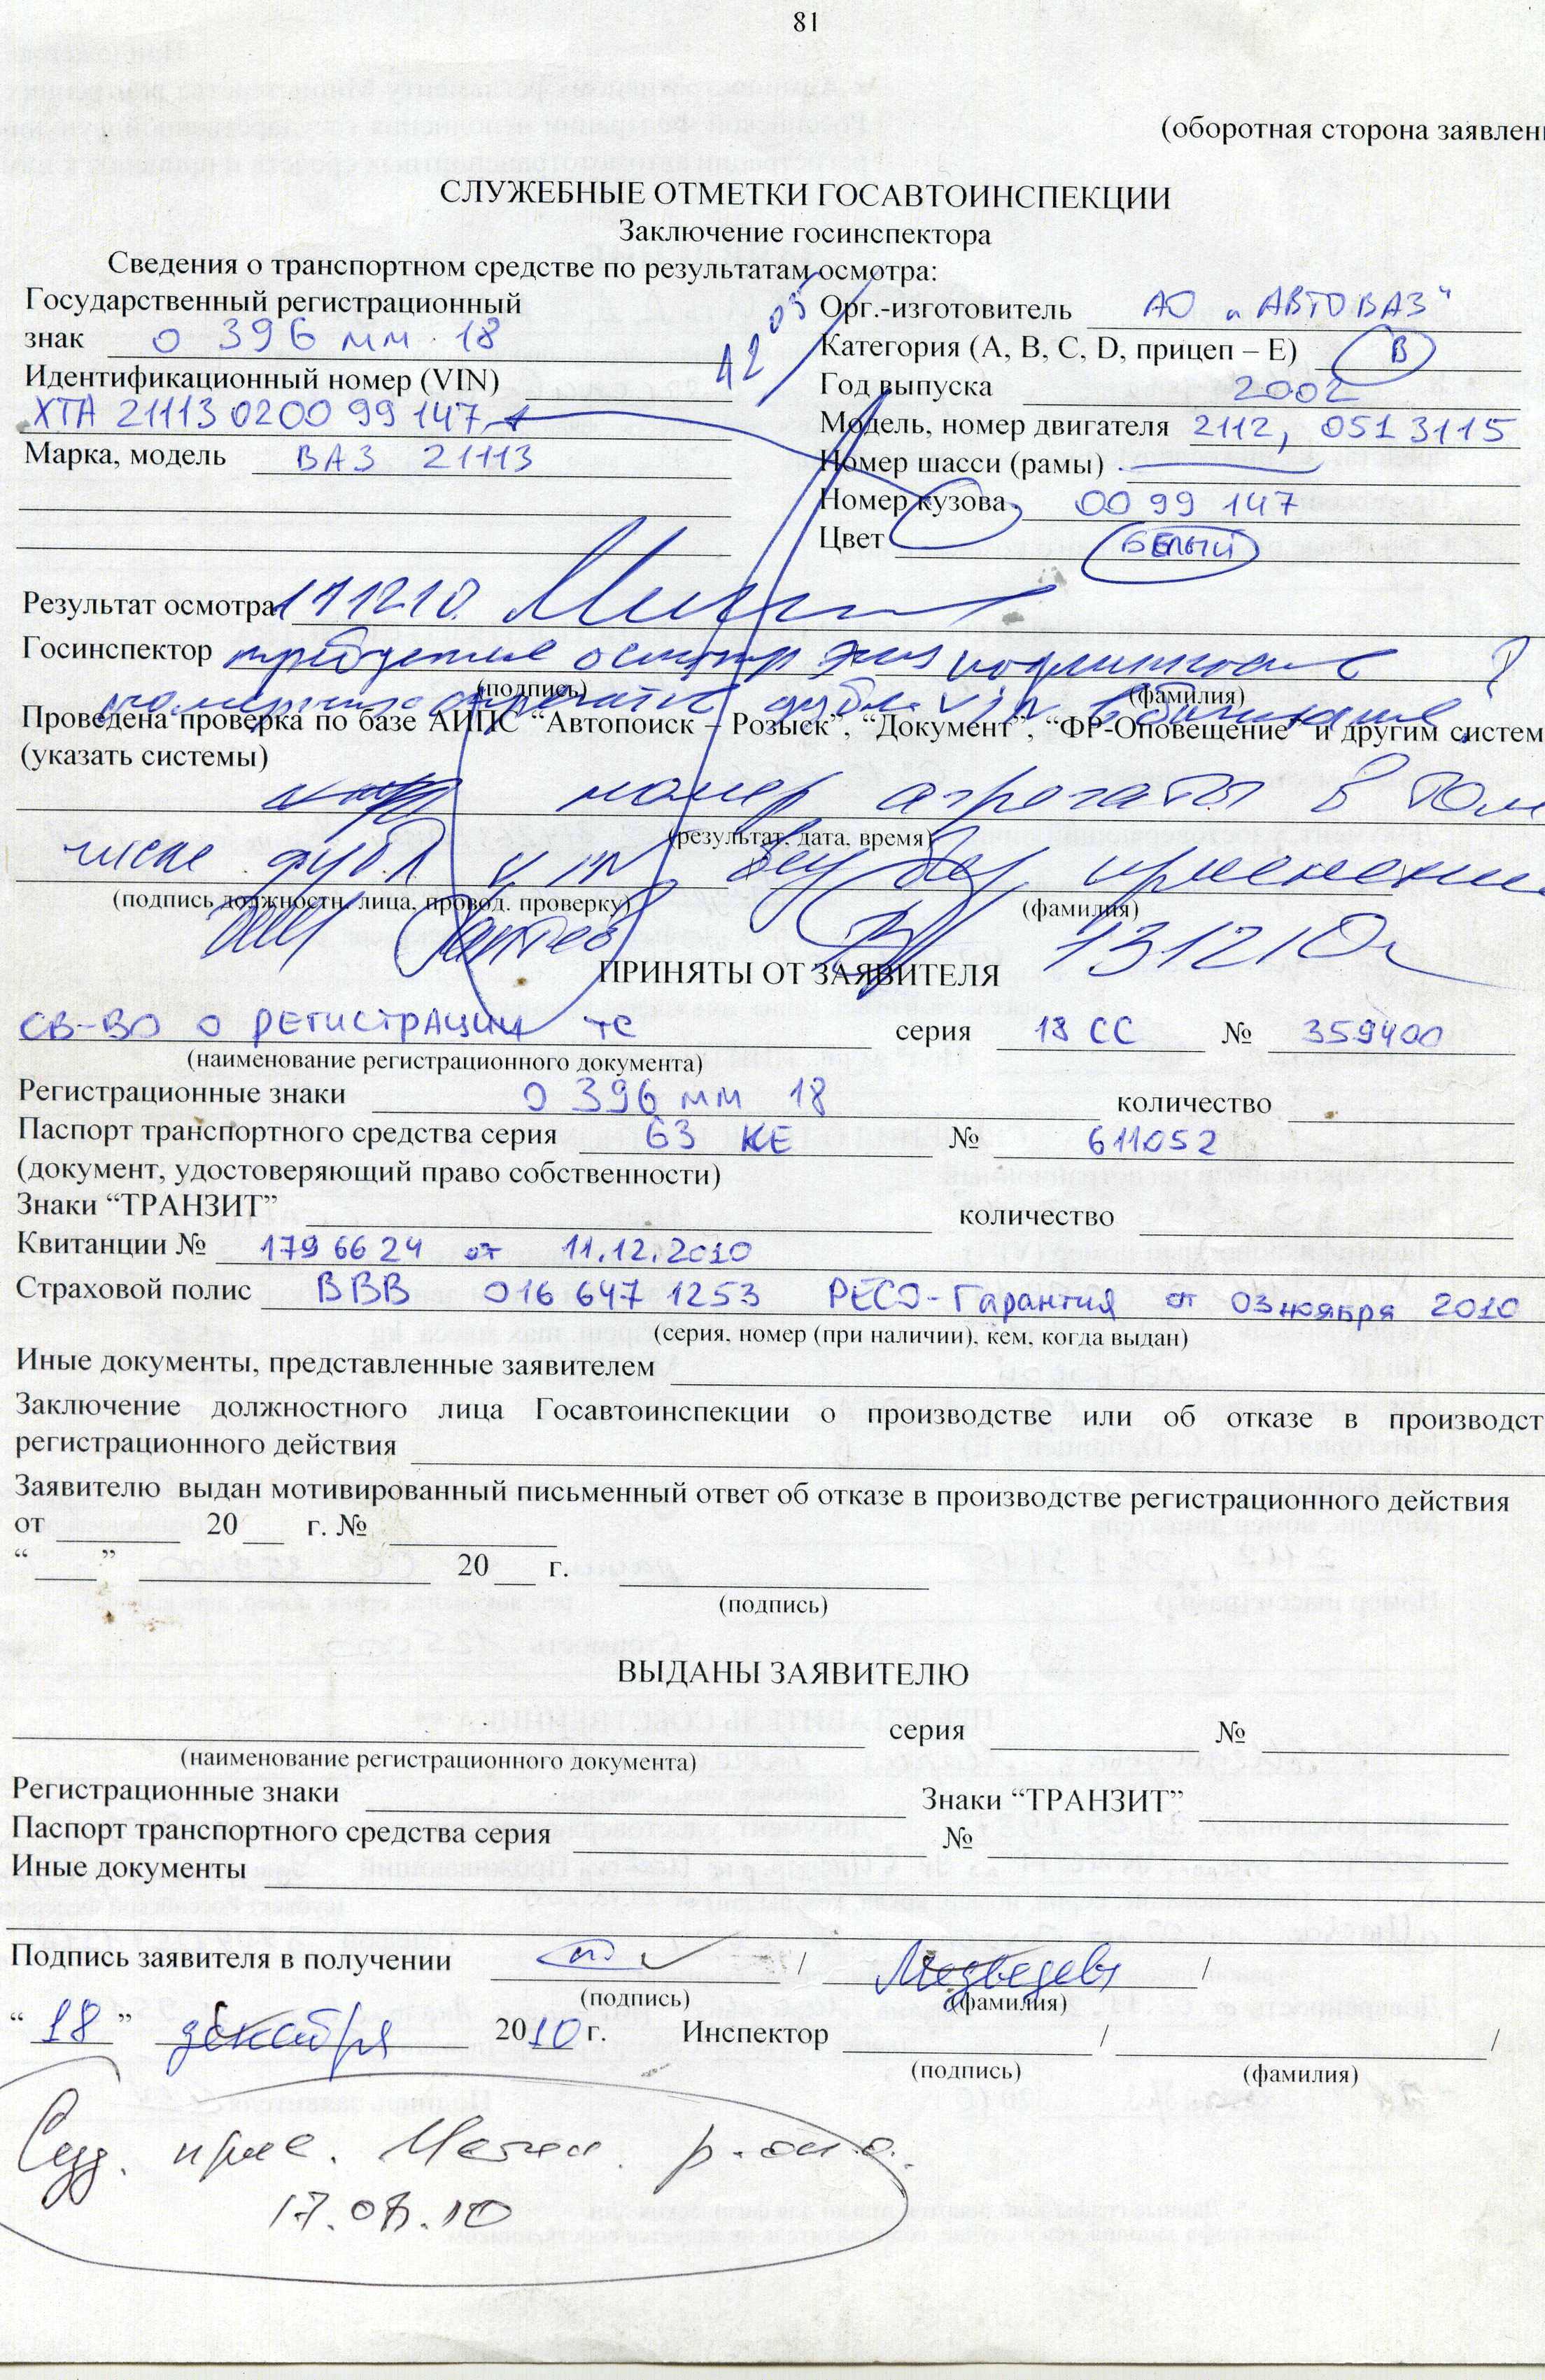 81
(оборотная сторона заявлен
СЛУЖЕБНЫЕ ОТМЕТКИ ГОСАВТОИНСПЕКЦИИ
Заключение госинспектора
Сведения о транспортном средстве по результатам осмотра:
Государственный регистрационный
знак О 396 ММ 18
Идентификационный номер (VIN)
ХТА 21113 0200 99 147
Марка, модель ВАЗ 21113
12 05
Орг.-изготовитель АО „АВТОВАЗ“
Категория (А, В, С, D, прицеп – Е) В
Год выпуска 2002
Модель, номер двигателя 2112, 0513115
Номер шасси (рамы) —
Номер кузова 00 99 147
Цвет БЕЛЫЙ
Результат осмотра 111210
Госинспектор требуется осмотр
(подпись) (фамилия)
Проведена проверка по базе АИПС “Автопоиск – Розыск”, “Документ”, “ФР-Оповещение” и другим систем
(указать системы)
номер агрегаты в том
(результат, дата, время)
числе дубл
(подпись должностн. лица, провод. проверку) (фамилия)
131210
ПРИНЯТЫ ОТ ЗАЯВИТЕЛЯ
СВ-ВО О РЕГИСТРАЦИИ ТС серия 18 СС № 359400
(наименование регистрационного документа)
Регистрационные знаки О 396 ММ 18 количество
Паспорт транспортного средства серия 63 КЕ № 611052
(документ, удостоверяющий право собственности)
Знаки “ТРАНЗИТ” количество
Квитанции № 179 66 24 от 11.12.2010
Страховой полис ВВВ 016 647 1253 РЕСО-Гарантия от 03 ноября 2010
(серия, номер (при наличии), кем, когда выдан)
Иные документы, представленные заявителем
Заключение должностного лица Госавтоинспекции о производстве или об отказе в производст
регистрационного действия
Заявителю выдан мотивированный письменный ответ об отказе в производстве регистрационного действия
от 20 г. №
“ ” 20 г.
(подпись)
ВЫДАНЫ ЗАЯВИТЕЛЮ
серия №
(наименование регистрационного документа)
Регистрационные знаки Знаки “ТРАНЗИТ”
Паспорт транспортного средства серия №
Иные документы
Подпись заявителя в получении / Медведевы /
(подпись) (фамилия)
“ 18 ” декабря 2010 г. Инспектор / /
(подпись) (фамилия)
17.08.10